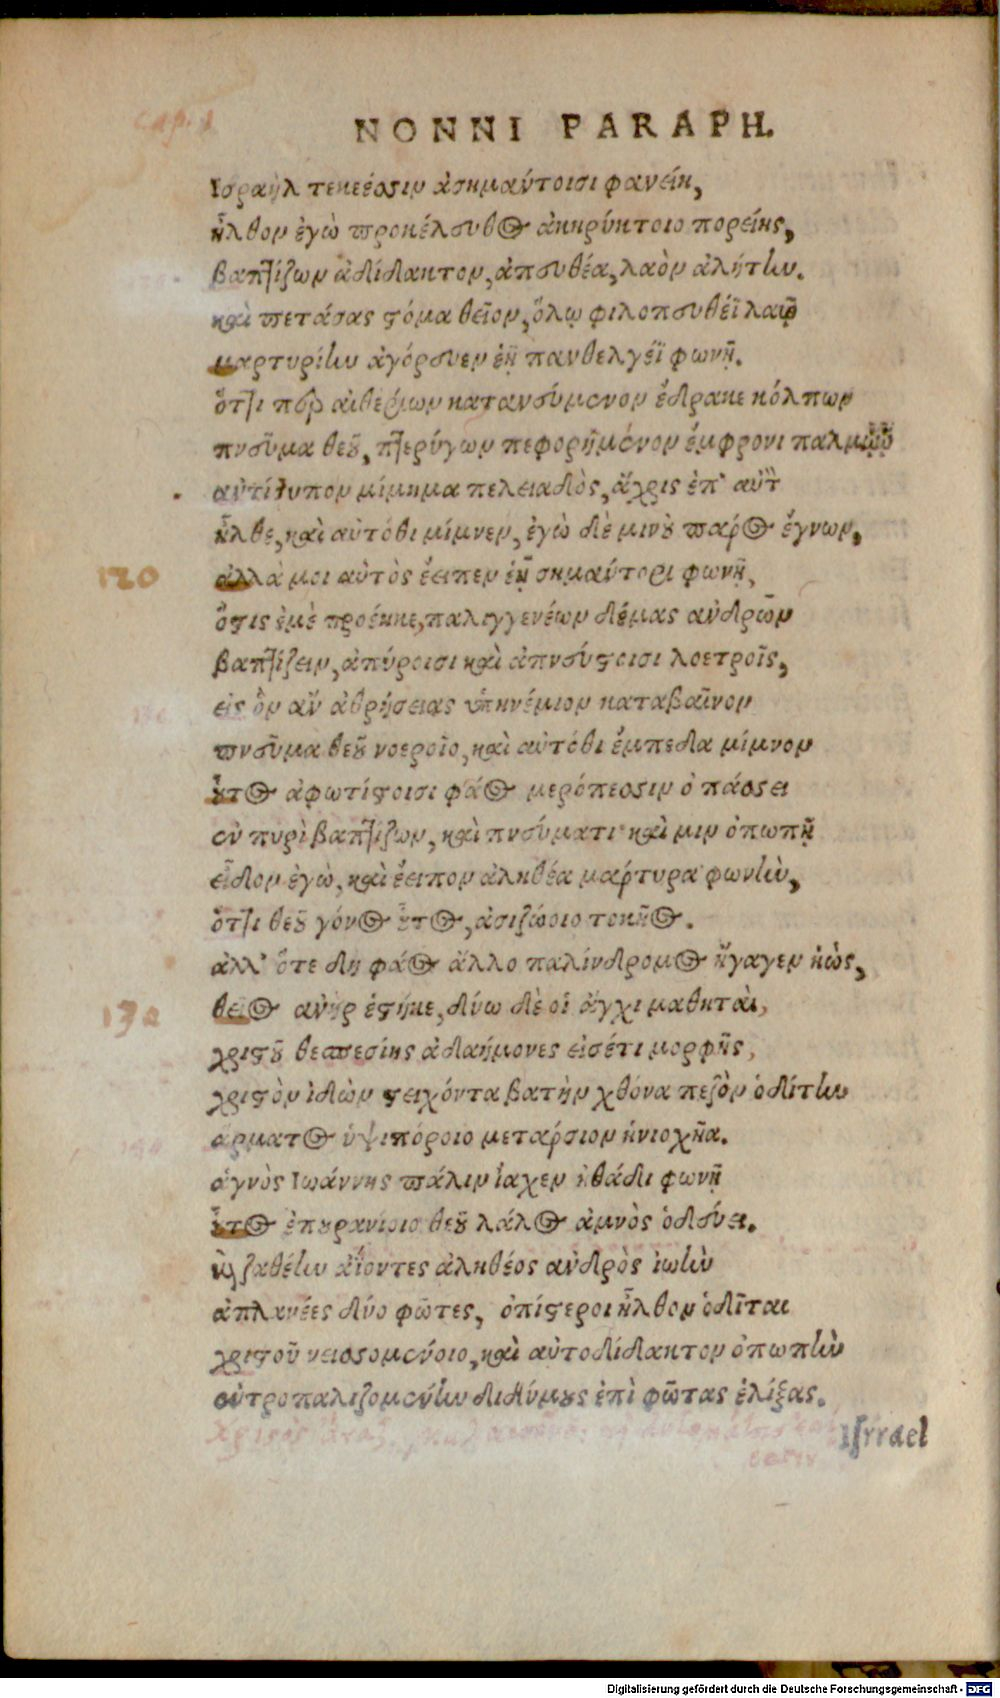 cap. 1
NONNI PARAPH.
Ισραὴλ τεκέεσσιν ἀσημάντοισι φανείη,
ἦλθον ἐγὼ προκέλευθος ἀκηρύκτοιο πορείης,
βαπτίζων ἀδίδακτον, ἀπευθέα, λαὸν ἀλήτην.
καὶ πετάσας στόμα θεῖον, ὅλῳ φιλοπευθέϊ λαῷ
μαρτυρίην ἀγόρευεν ἑῇ πανθελγέϊ φωνῇ.
ὅττι περ αἰθερίων κατανεύμενον ἔδρακε κόλπων
πνεῦμα θεοῦ, πτερύγων πεφορημένον ἔμφρονι παλμῷ
ἀντίτυπον μίμημα πελειαδὸς, ἄχρις ἐπ' αὐτ
ἦλθε, καὶ αὐτόθι μίμνεν, ἐγὼ δέ μιν οὐ πάρος ἔγνων,
120
ἀλλά μοι αὐτὸς ἔειπεν ἑῇ σημάντορι φωνῇ,
ὅστις ἐμὲ προέηκε, παλιγγενέων δέμας ἀνδρῶν
βαπτίζειν, ἀπύροισι καὶ ἀπνεύστοισι λοετροῖς,
εἰς ὃν ἂν ἀθρήσειας ὑπηνέμιον καταβαῖνον
πνεῦμα θεοῦ νοεροῖο, καὶ αὐτόθι ἔμπεδα μίμνον
οὗτος ἀφωτίστοισι φάος μερόπεσσιν ὀπάσσει
ἐν πυρὶ βαπτίζων, καὶ πνεύματι καὶ μιν ὀπωπῇ
εἶδον ἐγὼ, καὶ ἔειπον ἀληθέα μάρτυρα φωνὴν,
ὅττι θεοῦ γόνος οὗτος, ἀειζώοιο τοκῆος.
ἀλλ' ὅτε δὴ φάος ἄλλο παλίνδρομος ἤγαγεν ἠὼς,
130
θεῖος ἀνὴρ ἑστήκε, δύω δὲ οἱ ἄγχι μαθηταὶ,
χριστοῦ θεσπεσίης ἀδαήμονες εἰσέτι μορφῆς,
χριστὸν ἰδὼν στείχόντα βατὴν χθόνα πεζὸν ὁδίτην
ἅρματος ὑψιπόροιο μετάρσιον ἡνιοχῆα.
ἁγνὸς Ιωάννης πάλιν ἴαχεν ἠθάδι φωνῇ
οὗτος ἐπουρανίοιο θεοῦ λάλος ἀμνὸς ὁδεύει.
καὶ ζαθέην ἀΐοντες ἀληθέος ἀνδρὸς ἰωὴν
ἀπλανέες δύο φῶτες, ὀπίστεροι ἦλθον ὁδῖται
χριστοῦ νεισσομένοιο, καὶ αὐτοδίδακτον ὀπωπὴν
ἐντροπαλιζομένην διδύμους ἐπὶ φῶτας ἑλίξας.
Isrrael
Digitalisierung gefördert durch die Deutsche Forschungsgemeinschaft - DFG